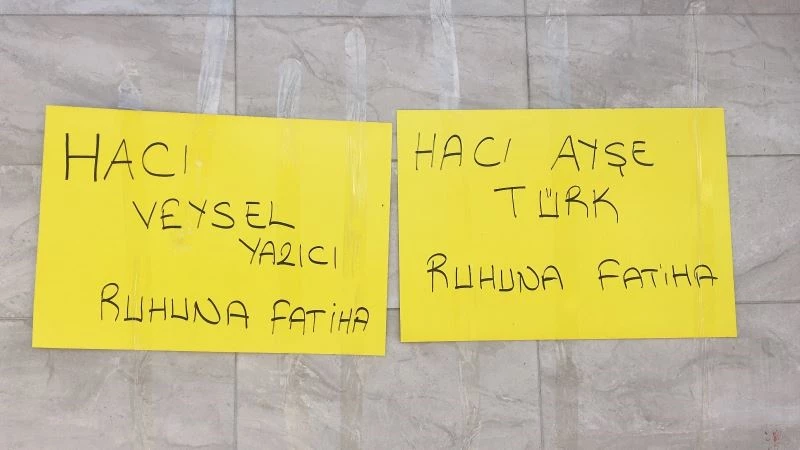 HACI
VEYSEL
YAZICI
RUHUNA FATİHA
HACI AYŞE
TÜRK
RUHUNA FATİHA